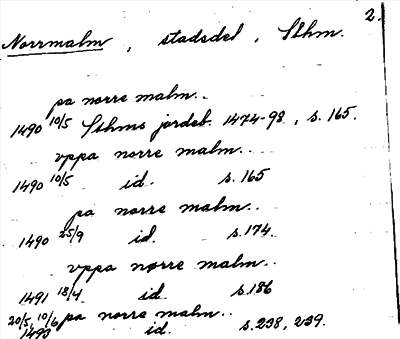 2.
Norrmalm, stadsdel, Sthm.
pa norre malm..
1490 10/5 Sthms jordeb. 1474-98, s. 165.
vppa norre malm..
1490 10/5 id. s. 165
pa norre malm..
1490 25/9 id. s. 174.
vppa norre malm..
1491 18/4. id. s. 186
pa norre malm..
20/5, 10/6 1493 id. s. 238, 239.